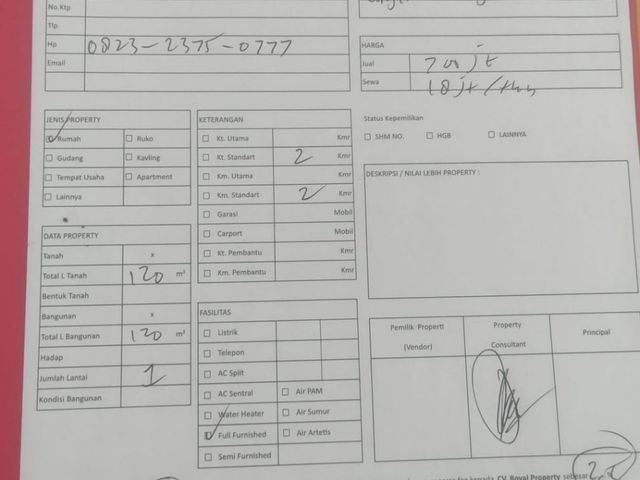 No.Ktp
Tlp
Hp 0823-2375-0777
Email
HARGA
Jual 700 jt
Sewa 18 jt/thn
JENIS PROPERTY
Rumah Ruko
Gudang Kavling
Tempat Usaha Apartment
Lainnya
KETERANGAN
Kt. Utama Kmr
Kt. Standart 2 Kmr
Km. Utama Kmr
Km. Standart 2 Kmr
Garasi Mobil
Carport Mobil
Kt. Pembantu Kmr
Km. Pembantu Kmr
Status Kepemilikan
SHM NO. HGB LAINNYA
DESKRIPSI / NILAI LEBIH PROPERTY :
DATA PROPERTY
Tanah x
Total L Tanah 120 m²
Bentuk Tanah
Bangunan x
Total L Bangunan 120 m²
Hadap
Jumlah Lantai 1
Kondisi Bangunan
FASILITAS
Listrik
Telepon
AC Split
AC Sentral Air PAM
Water Heater Air Sumur
Full Furnished Air Artetis
Semi Furnished
Pemilik Properti (Vendor)
Property Consultant
Principal
kepada CV. Royal Property sebesar